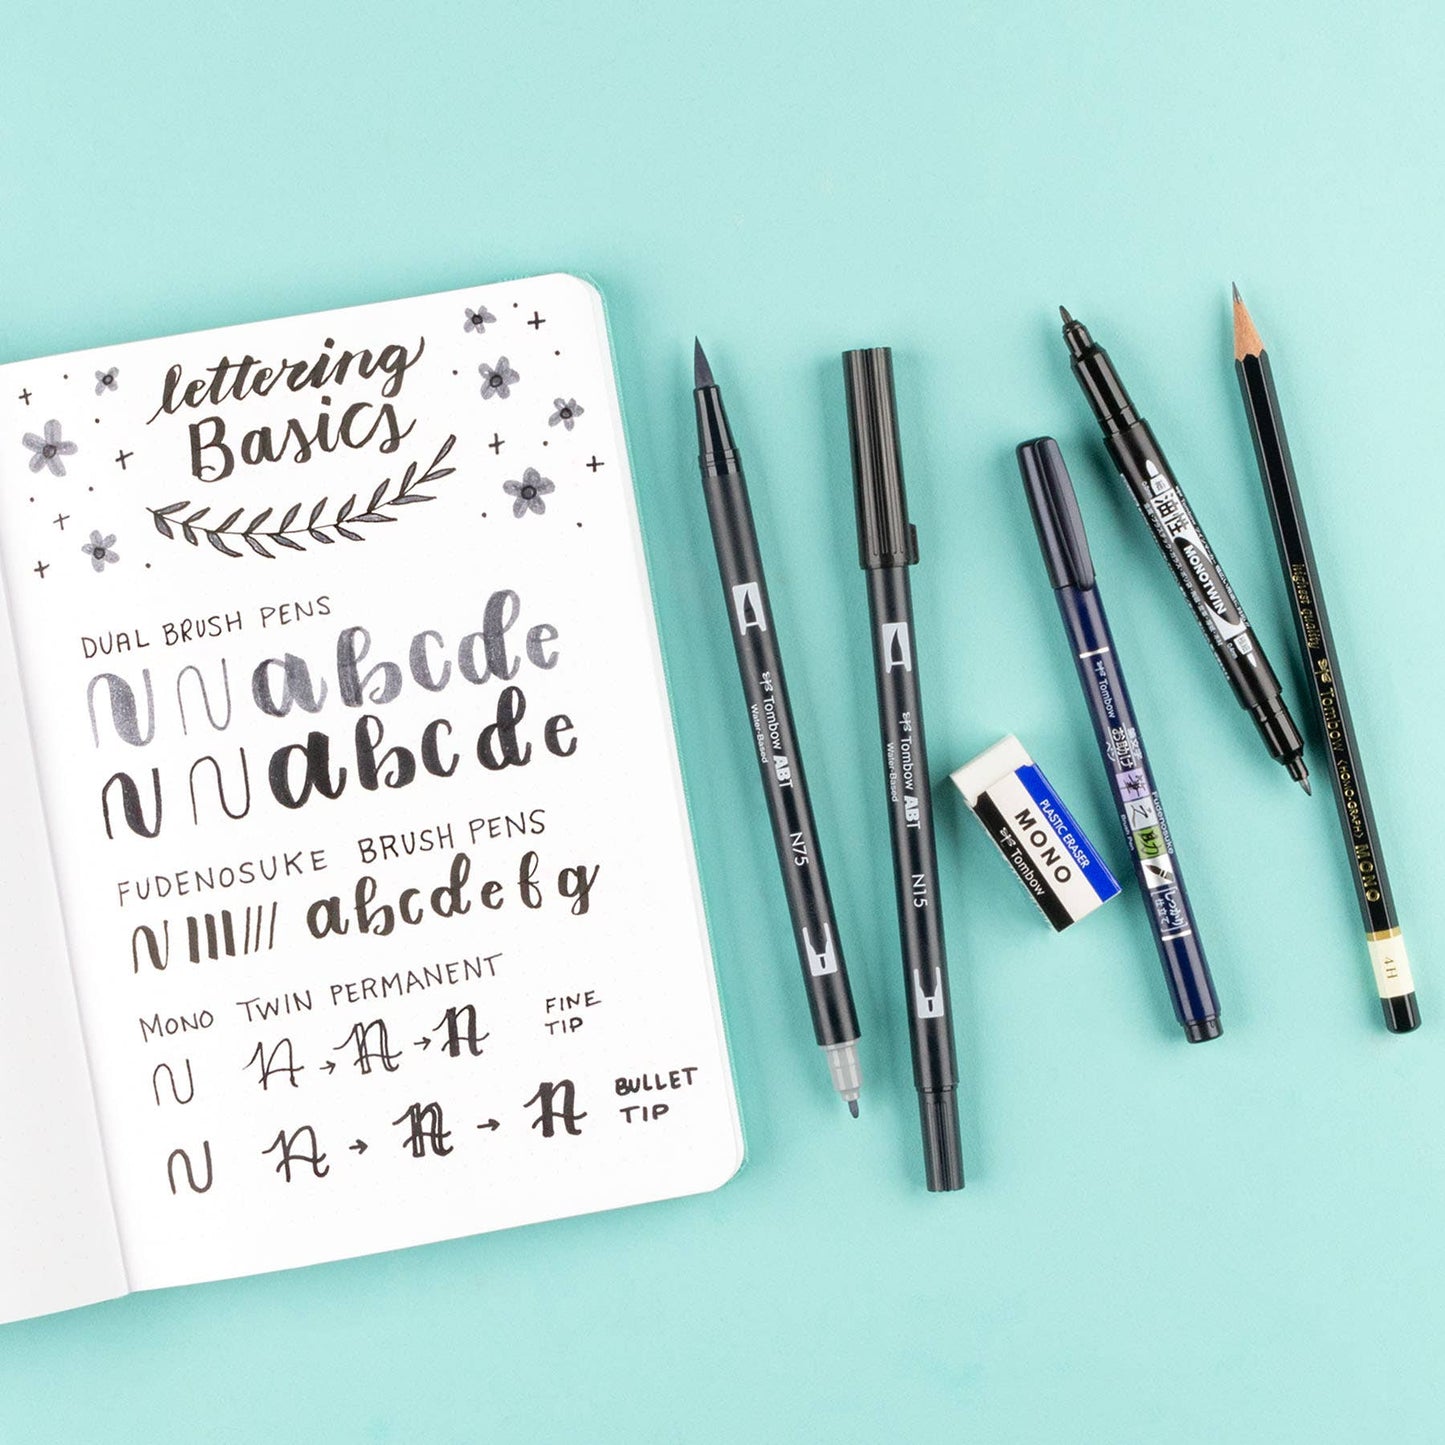 lettering
Basics
DUAL BRUSH PENS
N N abcde
N N abcde
FUDENOSUKE BRUSH PENS
N abcdefg
MONO TWIN PERMANENT
N n → n → n FINE
TIP
N n → n → n BULLET
TIP
Tombow ABT N75
Water-Based
Tombow ABT N15
Water-Based
PLASTIC ERASER
MONO
Tombow
Tombow
Fudenosuke
Brush Pen
MONOTWIN
highest quality Tombow <MONO-GRAPH> MONO 4H